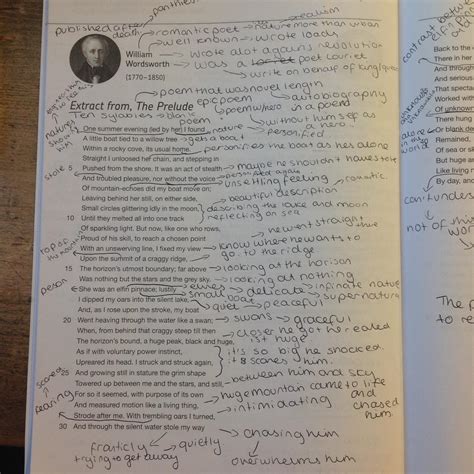 pantheis
published after death
romantic poet
nature more than urban
realism
well known
wrote loads
William
Wordsworth
(1770–1850)
wrote alot agains revolution
was a poet
write on behalf of king/
poem that was novel length
epic poem
autobiography
poem w/ hero
on a poem
Extract from, The Prelude
Ten sylabies
without him self as a hero
nature
One summer evening (led by her) I found
get a boat
personifier
A little boat tied to a willow tree
Within a rocky cove, its usual home.
personifies the boat as hes alone
Straight I unloosed her chain, and stepping in
stole
5 Pushed from the shore. It was an act of stealth
maybe he shouldn't have stole
And troubled pleasure, nor without the voice
unsettling feeling
romantic
Of mountain-echoes did my boat move on;
Leaving behind her still, on either side,
beautiful description
Small circles glittering idly in the moon,
describing the lake and moon
10 Until they melted all into one track
reflecting on sea
Of sparkling light. But now, like one who rows,
Proud of his skill, to reach a chosen point
he went straight
true
With an unswerving line, I fixed my view
know where he wants to
top of the mountain
Upon the summit of a craggy ridge,
go to the ridge
15 The horizon's utmost boundary; far above
looking at the horison
Was nothing but the stars and the grey sky.
looking at nothing
person
She was an elfin pinnace; lustily
elves
small
delicate
infinate nature
supernatural
I dipped my oars into the silent lake,
quiet
peaceful
And, as I rose upon the stroke, my boat
20 Went heaving through the water like a swan;
swans
graceful
When, from behind that craggy steep till then
closer he got he realed
The horizon's bound, a huge peak, black and huge,
is huge
As if with voluntary power instinct,
it's so big he shocked.
Upreared its head. I struck and struck again,
it scares him.
scared
25 And growing still in stature the grim shape
Towered up between me and the stars, and still,
between him and sky
For so it seemed, with purpose of its own
huge mountain came to life
fearing
And measured motion like a living thing,
intimidating
and chased him
Strode after me. With trembling oars I turned,
30 And through the silent water stole my way
chasing him
franticly
quietly
trying to get away
overwhelms him
contrast between
Back to the
There in her
And through
And serious
That specta
Worked with
Of unknown
There hung
Or blank de
Remained,
Of sea or sk
But huge an
Like living
By day, an
cant under
not of this
The
to re